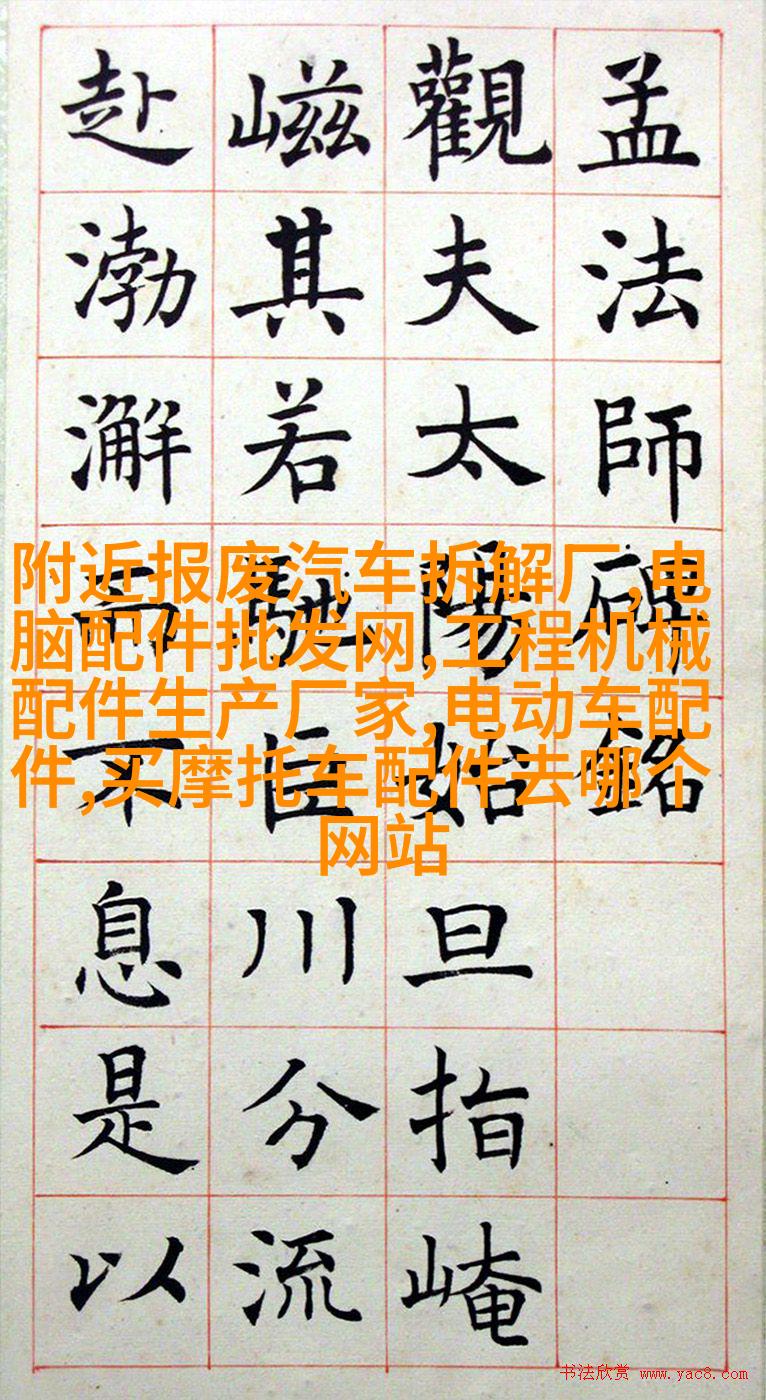 孟法師碑銘
觀夫太陽始旦指崦
嵫其若馳巨川分流
赴渤澥而不息是以
附近报废汽车拆解厂,电
脑配件批发网,工程机械
配件生产厂家,电动车配
件,买摩托车配件去哪个
网站
书法欣赏 www.yac8.com